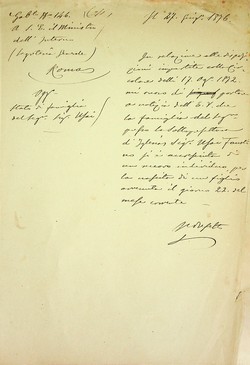 Gab.° N° 146.
A S. E. il Ministro
dell' Interno
(Segretario Generale)
Roma
Stato di famiglia
del Seg. Sig. Usai
Il 27. 1876.
In relazione alle disposi
zioni impartite colla Cir
colare delli 17. 1872.
mi onoro di portare
a notizia dell' E. V. che
la famiglia del Seg.°
presso la Sottoprefettura
di Iglesias Sig. Usai
si è accresciuta di
un nuovo individuo, per
la nascita di un figlio
avvenuta il giorno 22. del
mese corrente.